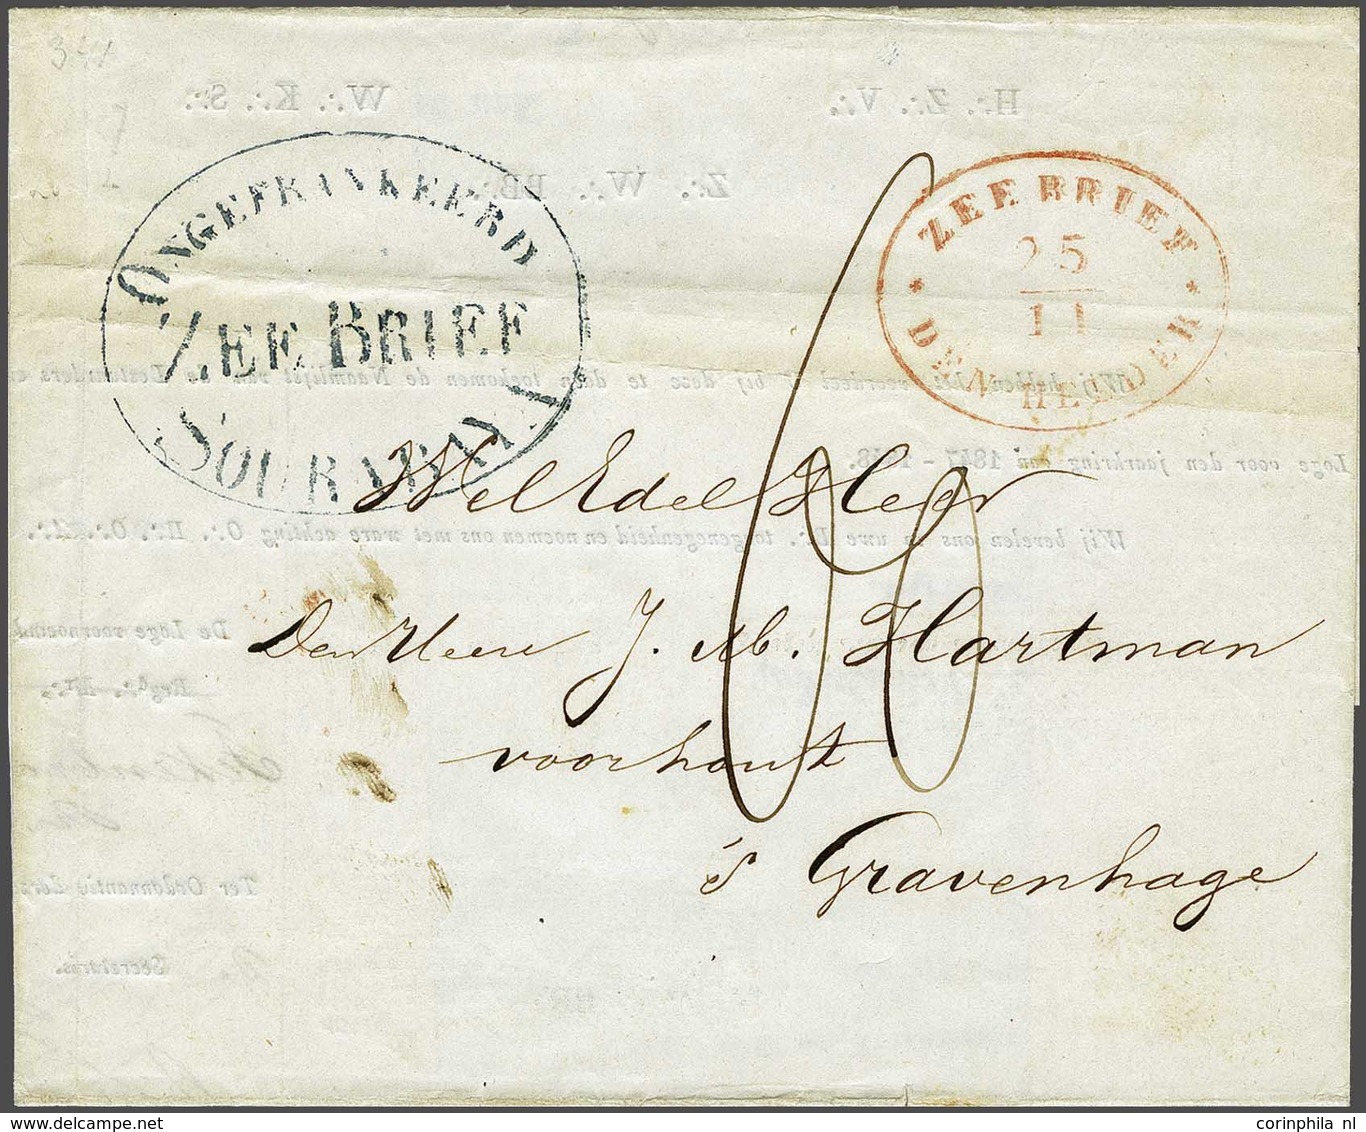 ONGEFRANKEERD
ZEE BRIEF
SOURABAYA
ZEE BRIEF
25
11
DEN HELDER
60
WelEdel Heer
Den Heere J. M. Hartman
voorhout
's Gravenhage
H∴ Z∴ V∴
W∴ K∴ S∴
Z∴ W∴ BB∴
Wij hebben het voordeel U bij deze te doen toekomen de Naamlijst van de Bestuurders
Loge voor den jaarkring van 1847-1848.
Wij bevelen ons in uwe Br∴ toegenegenheid en noemen ons met ware achting
De Loge voornoemd
Ter Ordonnantie
Secretaris.
corinphila nl